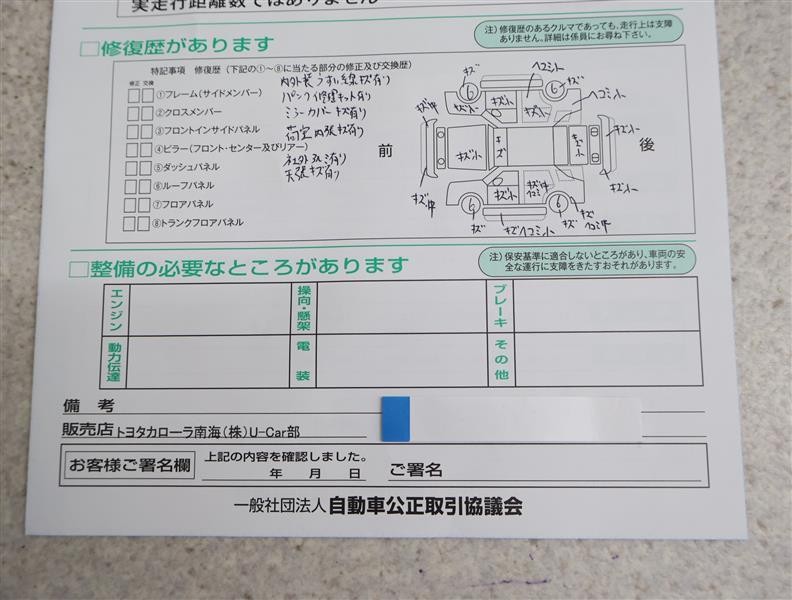 実走行距離数ではありません
□修復歴があります
注）修復歴のあるクルマであっても、走行上は支障
ありません。詳細は係員にお尋ね下さい。
特記事項　修復歴（下記の①〜⑧に当たる部分の修正及び交換歴）
修正 交換
①フレーム（サイドメンバー）
②クロスメンバー
③フロントインサイドパネル
④ピラー（フロント・センター及びリアー）
⑤ダッシュパネル
⑥ルーフパネル
⑦フロアパネル
⑧トランクフロアパネル
内外装うすい線キズ有り
パンク修理キット有り
ミラーカバーキズ有り
荷室内張キズ有り
天張キズ有り
前
後
キズ
6
6
キズ
ヘコミ小
キズ小
キズ小
キズ小
ヘコミ小
キズ中
キズ小
キズ小
キズ
キズ小
キズ小
キズ中
キズ小
キズ中
ヘコミ
6
6
キズ
キズ
ヘコミ小
キズ
ヘコミ中
□整備の必要なところがあります
注）保安基準に適合しないところがあり、車両の安
全な運行に支障をきたすおそれがあります。
エンジン
操向・懸架
ブレーキ
動力伝達
電装
その他
備考
販売店 トヨタカローラ南海（株）U-Car部
お客様ご署名欄
上記の内容を確認しました。
年　月　日
ご署名
一般社団法人 自動車公正取引協議会